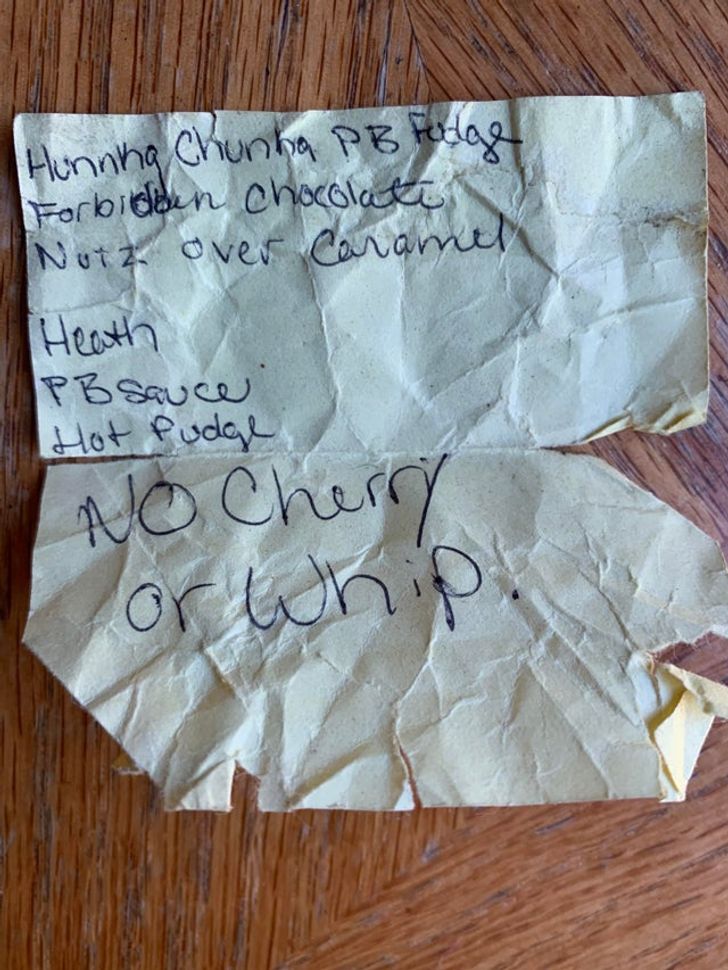 Hunnka Chunka PB Fudge
Forbidden Chocolate
Nutz over Caramel
Heath
PB Sauce
Hot Fudge
NO Cherry
or Whip.